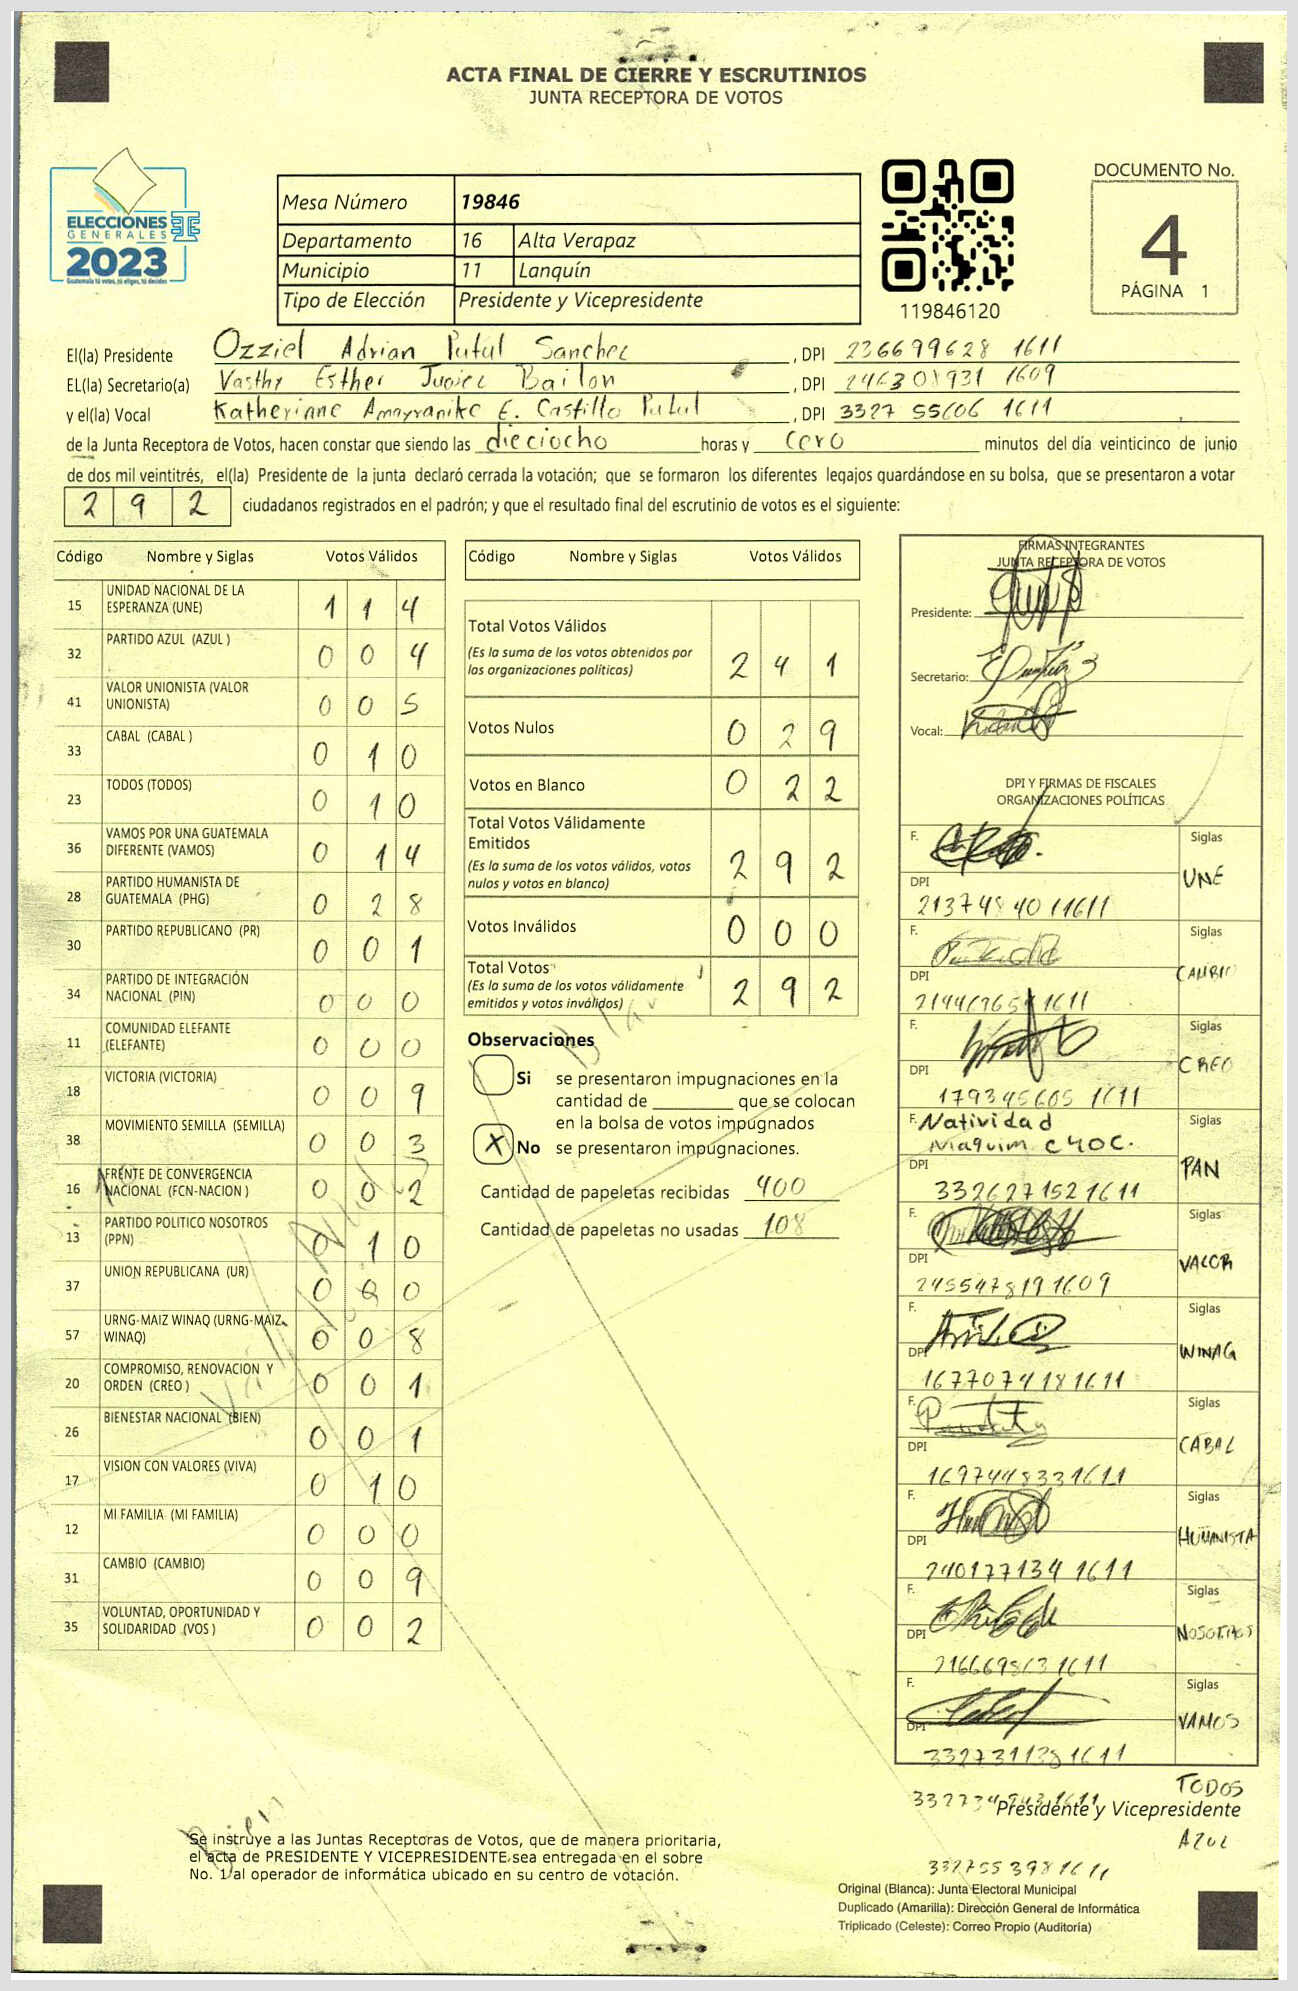 ACTA FINAL DE CIERRE Y ESCRUTINIOS
JUNTA RECEPTORA DE VOTOS
ELECCIONES
GENERALES
2023
Guatemala tú votes, tú eliges, tú decides
Mesa Número 19846
Departamento 16 Alta Verapaz
Municipio 11 Lanquín
Tipo de Elección Presidente y Vicepresidente
119846120
DOCUMENTO No.
4
PÁGINA 1
El(la) Presidente Ozziel Adrian Putul Sanchez , DPI 236699628 1611
EL(la) Secretario(a) Vasthy Esther Juárez Bailon , DPI 246308931 1609
y el(la) Vocal Katherinne E. Castillo Putul , DPI 3327 55606 1611
de la Junta Receptora de Votos, hacen constar que siendo las dieciocho horas y cero minutos del día veinticinco de junio
de dos mil veintitrés, el(la) Presidente de la junta declaró cerrada la votación; que se formaron los diferentes legajos guardándose en su bolsa, que se presentaron a votar
2 9 2 ciudadanos registrados en el padrón; y que el resultado final del escrutinio de votos es el siguiente:
Código Nombre y Siglas Votos Válidos
15 UNIDAD NACIONAL DE LA
ESPERANZA (UNE) 1 1 4
32 PARTIDO AZUL (AZUL ) 0 0 4
41 VALOR UNIONISTA (VALOR
UNIONISTA) 0 0 5
33 CABAL (CABAL ) 0 1 0
23 TODOS (TODOS) 0 1 0
36 VAMOS POR UNA GUATEMALA
DIFERENTE (VAMOS) 0 1 4
28 PARTIDO HUMANISTA DE
GUATEMALA (PHG) 0 2 8
30 PARTIDO REPUBLICANO (PR) 0 0 1
34 PARTIDO DE INTEGRACIÓN
NACIONAL (PIN) 0 0 0
11 COMUNIDAD ELEFANTE
(ELEFANTE) 0 0 0
18 VICTORIA (VICTORIA) 0 0 9
38 MOVIMIENTO SEMILLA (SEMILLA) 0 0 3
16 FRENTE DE CONVERGENCIA
NACIONAL (FCN-NACION ) 0 0 2
13 PARTIDO POLITICO NOSOTROS
(PPN) 0 1 0
37 UNION REPUBLICANA (UR) 0 0 0
57 URNG-MAIZ WINAQ (URNG-MAIZ-
WINAQ) 0 0 8
20 COMPROMISO, RENOVACION Y
ORDEN (CREO ) 0 0 1
26 BIENESTAR NACIONAL (BIEN) 0 0 1
17 VISION CON VALORES (VIVA) 0 1 0
12 MI FAMILIA (MI FAMILIA) 0 0 0
31 CAMBIO (CAMBIO) 0 0 9
35 VOLUNTAD, OPORTUNIDAD Y
SOLIDARIDAD (VOS ) 0 0 2
Código Nombre y Siglas Votos Válidos
Total Votos Válidos
(Es la suma de los votos obtenidos por
las organizaciones políticas) 2 4 1
Votos Nulos 0 2 9
Votos en Blanco 0 2 2
Total Votos Válidamente
Emitidos
(Es la suma de los votos válidos, votos
nulos y votos en blanco) 2 9 2
Votos Inválidos 0 0 0
Total Votos
(Es la suma de los votos válidamente
emitidos y votos inválidos) 2 9 2
Observaciones
Si se presentaron impugnaciones en la
cantidad de ________ que se colocan
en la bolsa de votos impugnados
X No se presentaron impugnaciones.
Cantidad de papeletas recibidas 400
Cantidad de papeletas no usadas 108
FIRMAS INTEGRANTES
JUNTA RECEPTORA DE VOTOS
Presidente:
Secretario:
Vocal:
DPI Y FIRMAS DE FISCALES
ORGANIZACIONES POLÍTICAS
F. Siglas
UNE
DPI
213748401 1611
F. Siglas
CAMBIO
DPI
F. Siglas
CREO
DPI
179345605 1611
F. Natividad Siglas
Maquim CHOC.
PAN
DPI
332627152 1611
F. Siglas
VALOR
DPI
245547819 1609
F. Siglas
WINAG
DPI
167707418 1611
F. Siglas
CABAL
DPI
169744833 1611
F. Siglas
HUMANISTA
DPI
240177134 1611
F. Siglas
NOSOTROS
DPI
F. Siglas
VAMOS
DPI
332731138 1611
TODOS
Presidente y Vicepresidente
AZUL
332755398 1611
Bien
Se instruye a las Juntas Receptoras de Votos, que de manera prioritaria,
el acta de PRESIDENTE Y VICEPRESIDENTE sea entregada en el sobre
No. 1 al operador de informática ubicado en su centro de votación.
Original (Blanca): Junta Electoral Municipal
Duplicado (Amarilla): Dirección General de Informática
Triplicado (Celeste): Correo Propio (Auditoría)